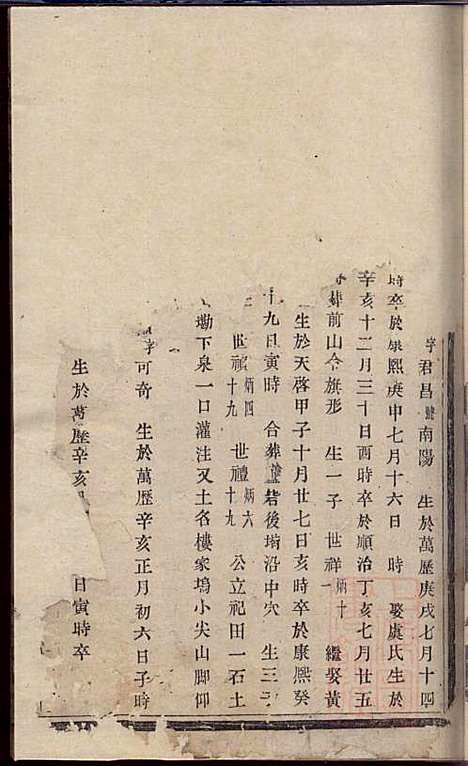 字君昌號南陽 生於萬歷庚戌七月十四
時卒於康熙庚申七月十六日 時 娶虞氏生於
辛亥十二月三十日酉時卒於順治丁亥七月廿五
葬前山令旗形 生一子 世祥炳十一 繼娶黃
生於天啓甲子十月廿七日亥時卒於康熙癸
十九日寅時 合葬 砦後塝沿中穴 生三子
世禎炳四十九 世禮炳六十九 公立祀田一石土
塝下泉一口灌注又土名樓家塢小尖山脚仰
字可奇 生於萬歷辛亥正月初六日子時
生於萬歷辛亥 日寅時卒